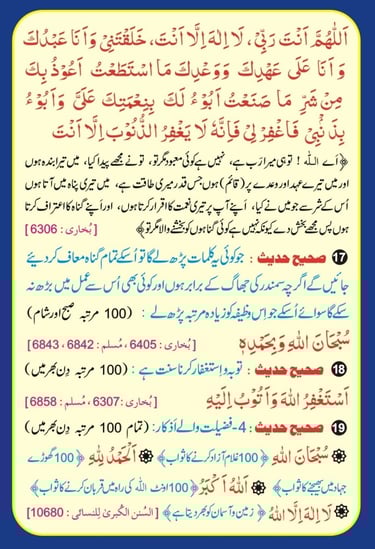 اَللّٰهُمَّ اَنْتَ رَبِّيْ، لَا اِلٰهَ اِلَّا اَنْتَ، خَلَقْتَنِيْ وَاَنَا عَبْدُكَ
وَ اَنَا عَلٰى عَهْدِكَ وَوَعْدِكَ مَا اسْتَطَعْتُ اَعُوْذُ بِكَ
مِنْ شَرِّ مَا صَنَعْتُ اَبُوْءُ لَكَ بِنِعْمَتِكَ عَلَيَّ وَاَبُوْءُ
بِذَنْبِيْ فَاغْفِرْ لِيْ فَاِنَّهُ لَا يَغْفِرُ الذُّنُوْبَ اِلَّا اَنْتَ
﴿اَے اللہ ! تو ہی میرا رَب ہے، نہیں ہے کوئی معبود مگر تو، تو نے مجھے پیدا کیا، میں تیرا بندہ ہوں
اور میں تیرے عہد اور وعدے پر (قائم) ہوں جس قدر میری طاقت ہے، میں تیری پناہ میں آتا ہوں
اُس کے شر سے جو میں نے کیا، میں اپنے آپ پر تیری نعمت کا اقرار کرتا ہوں، اور اپنے گناہ کا اعتراف کرتا
ہوں پس مجھے بخش دے کیونکہ نہیں ہے کوئی گناہوں کو بخشنے والا مگر تو﴾ [ بُخاری : 6306 ]
17 صحیح حدیث : جو کوئی یہ کلمات پڑھ لے گا تو اُسکے تمام گناہ معاف کر دیئے
جائیں گے اگرچہ سمندر کی جھاگ کے برابر ہوں اور کوئی بھی اُس سے عمل میں بڑھ نہ
سکے گا سوائے اُسکے جو اِس وظیفہ کو زیادہ مرتبہ پڑھ لے : (100 مرتبہ صبح اور شام)
سُبْحَانَ اللهِ وَبِحَمْدِهٖ [ بُخاری : 6405 ، مُسلم : 6842 ، 6843 ]
18 صحیح حدیث : توبہ و اِستغفار کرنا سنت ہے : (100 مرتبہ دِن بھر میں)
اَسْتَغْفِرُ اللهَ وَ اَتُوْبُ اِلَيْهِ [ بُخاری : 6307 ، مُسلم : 6858 ]
19 صحیح حدیث : 4 - فضیلت والے اَذکار : (تمام 100 مرتبہ دِن بھر میں)
سُبْحَانَ اللهِ ﴿100 غلام آزاد کرنے کا ثواب﴾ اَلْحَمْدُ لِلّٰهِ ﴿100 گھوڑے
جہاد میں بھیجنے کا ثواب﴾ اَللهُ اَكْبَرُ ﴿100 اونٹ اللہ کی راہ میں قربان کرنے کا ثواب﴾
لَا اِلٰهَ اِلَّا اللهُ ﴿زمین و آسمان کو بھر دیتا ہے﴾ [ السُنن الکُبریٰ لِلنسائی : 10680 ]